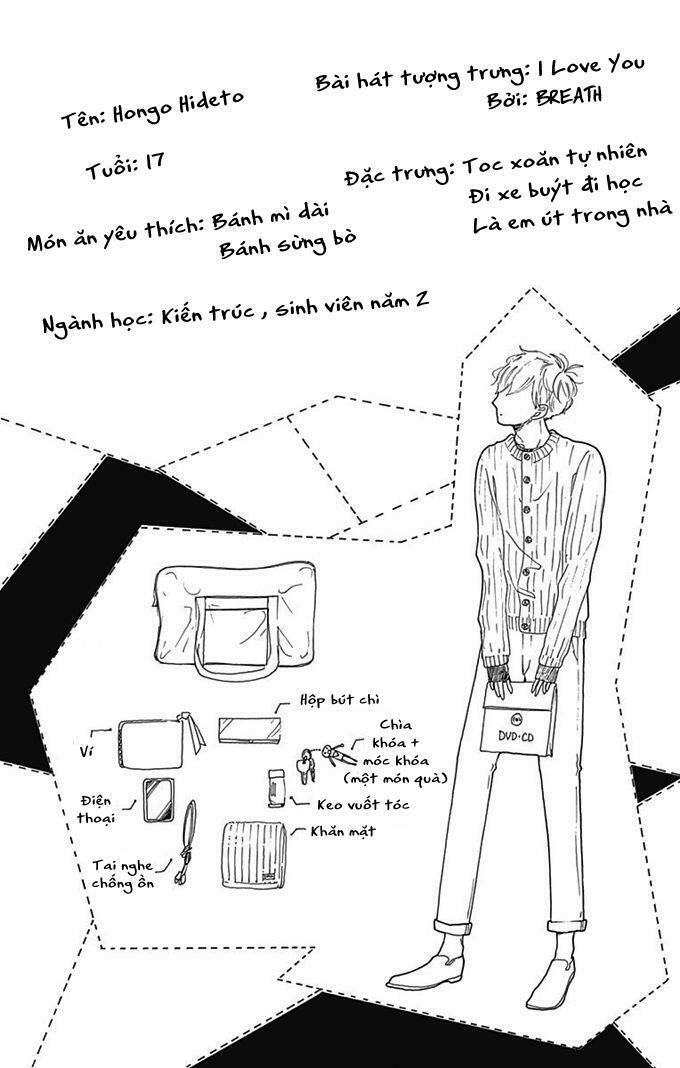 Tên: Hongo Hideto
Bài hát tượng trưng: I Love You
Bởi: BREATH
Tuổi: 17
Đặc trưng: Toc xoăn tự nhiên
Đi xe buýt đi học
Là em út trong nhà
Món ăn yêu thích: Bánh mì dài
Bánh sừng bò
Ngành học: Kiến trúc , sinh viên năm 2
Hộp bút chì
Ví
Chìa
khóa +
móc khóa
(một món quà)
DVD·CD
Điện
thoại
Keo vuốt tóc
Khăn mặt
Tai nghe
chống ồn